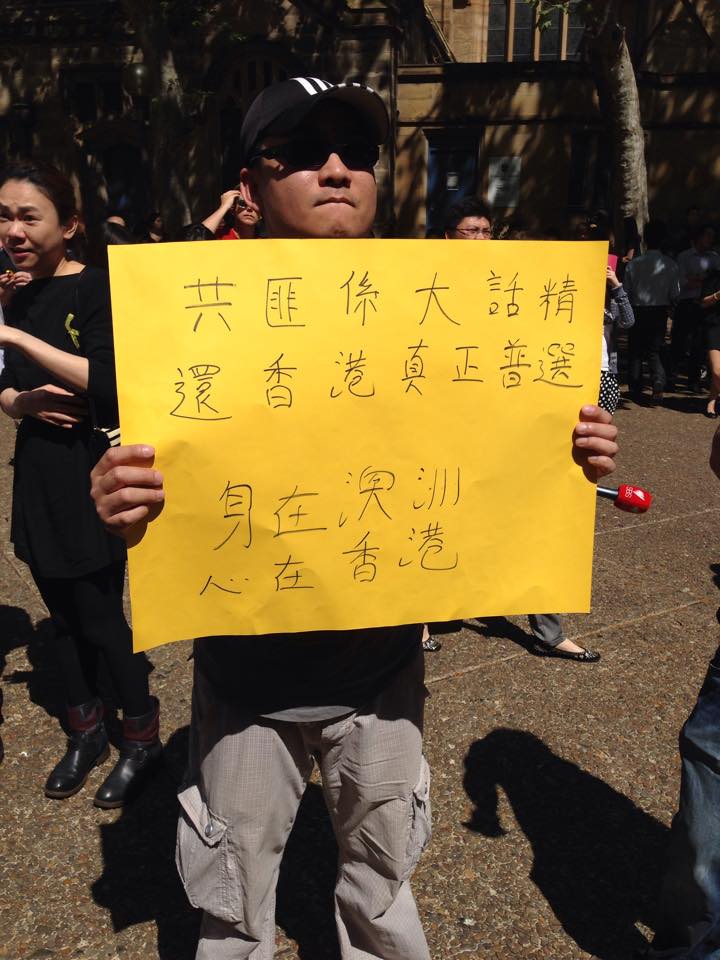 共匪係大話精
還香港真正普選
身在澳洲
心在香港
SBS